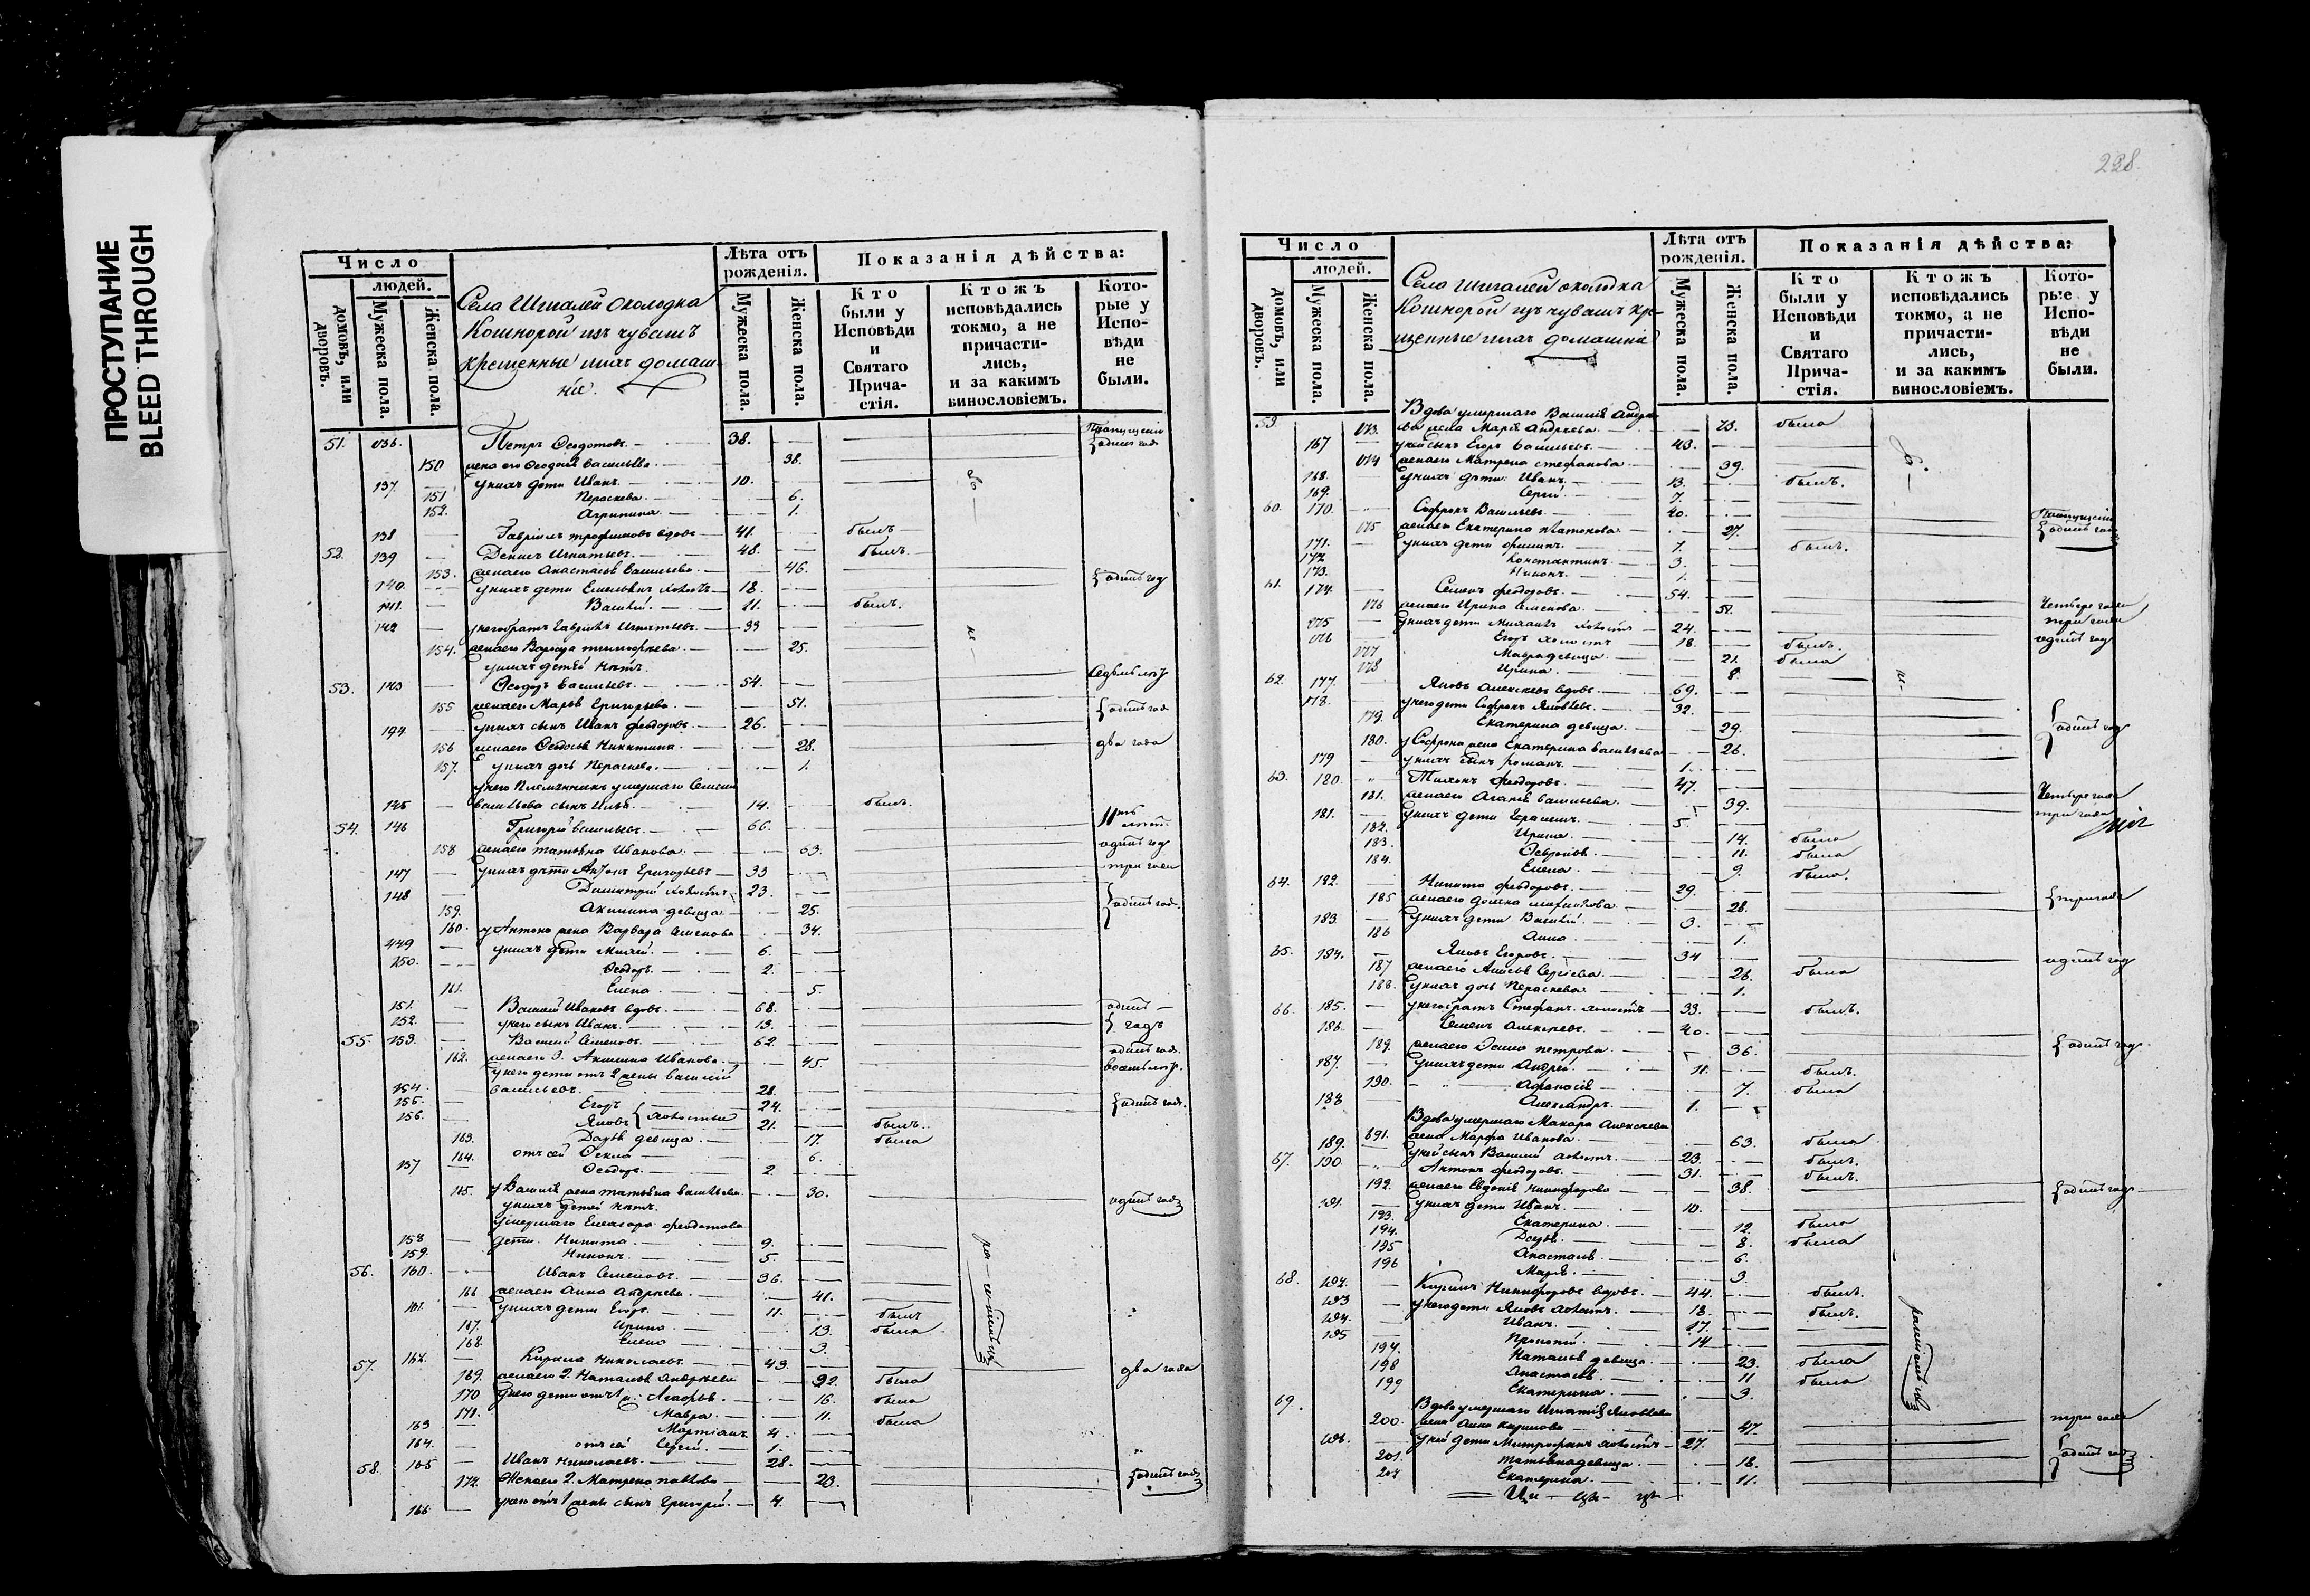 ПРОСТУПАНИЕ
BLEED THROUGH
Число
людей.
домовъ, или дворовъ.
Мужеска пола.
Женска пола.
Села Шигалей околодка
Кошнорой изъ чувашъ
крещенные и ихъ домаш-
ніе.
Лѣта отъ рожденія.
Мужеска пола.
Женска пола.
Показанія дѣйства:
Кто были у Исповѣди и Святаго Прича-стія.
Ктожъ исповѣдались токмо, а не причасти-лись, и за какимъ винословіемъ.
Кото-рые у Испо-вѣди не были.
51. 136. Петръ Ѳеодотовъ. 38. одинъ годъ
150 жена его Васильева. 38.
137. у нихъ дѣти Иванъ. 10.
151 Пераскева. 6.
152. Агрипина. 1.
138 Гавріилъ Трофимовъ вдовъ 41. былъ
52. 139 Денисъ Игнатьевъ. 48. былъ.
153. жена его Анастасія Васильева. 46.
140. у нихъ дѣти Емельянъ холостъ 18. одинъ годъ
141. Василій. 11. былъ.
142 у него братъ Гаврилъ Игнатьевъ. 33
154. жена его Варвара 25.
у нихъ дѣтей нѣтъ.
53. 143 Ѳеодоръ Васильевъ. 54. седьмь лѣтъ
155 жена его Марья Григорьева. 51. одинъ годъ
144 у нихъ сынъ Иванъ Ѳеодоровъ. 26.
156 жена его Ѳедосья Никитина. 28. два года
157. у нихъ дочь Пераскева. 1.
у него племянникъ умершаго Семена
145 Васильева сынъ Илья. 14. былъ.
54. 146 Григорій Васильевъ. 66. 11ть лѣтъ.
158 жена его Татьяна Иванова. 63. одинъ годъ
147 у нихъ дѣти Антонъ Григорьевъ 33 три года
148 Димитрій холостъ 23. одинъ годъ.
159. Акилина девица 25.
160. у Антона жена Варвара Семенова 34.
149 у нихъ дѣти 6.
150. Ѳеодоръ. 2.
161. Елена 5.
151. Василій Ивановъ вдовъ. 68. одинъ
152. у него сынъ Иванъ. 13. годъ
55. 153. Василій Семеновъ. 62. одинъ годъ.
162. жена его 3. Акилина Иванова. 45. восемь лѣтъ.
у него дѣти отъ 2 жены Василій
154. Васильевъ. 28.
155. Егоръ 24. одинъ годъ.
156. Яковъ холостые 21. былъ.
163. Дарья девица. 17. была
164. отъ сей Ѳекла 6.
157 Ѳеодоръ. 2.
165. у Василія жена Татьяна Васильева. 30. одинъ годъ
у нихъ дѣтей нѣтъ.
умершаго Елеазара Ѳеодотова
158 дѣти. Никита. 9.
159. Никонъ. 5.
56. 160. Иванъ Семеновъ. 36.
166 жена его Анна Андреева. 41.
161. у нихъ дѣти Егоръ. 11. былъ
167. Ирина. 13. была
168. Елена 3.
57. 162. Кирила Николаевъ. 43. два года
169. жена его 2. Наталья Андреева 32. была
170 у него дѣти отъ 1 ж: Агафья. 16. была
171. Мавра. 11. была
163 Мартіанъ 4.
164. отъ сей Сергій. 1.
58. 165 Иванъ Николаевъ. 28. одинъ годъ
172. Жена его 2. Матрена Павлова 23.
166 у него отъ 1 жены сынъ Григорій. 4.
228.
Число
людей.
домовъ, или дворовъ.
Мужеска пола.
Женска пола.
Села Шигалей околодка
Кошнорой изъ чувашъ кре-
щенные и ихъ домашніе
Лѣта отъ рожденія.
Мужеска пола.
Женска пола.
Показанія дѣйства:
Кто были у Исповѣди и Святаго Прича-стія.
Ктожъ исповѣдались токмо, а не причасти-лись, и за какимъ винословіемъ.
Кото-рые у Испо-вѣди не были.
59. Вдова умершаго Василія Андре-
173. ева жена Марія Андреева. 73. была
167 у ней сынъ Егоръ Васильевъ. 43.
174 жена его Матрена Стефанова 39.
168. у нихъ дѣти: Иванъ. 13. былъ.
169. Сергій. 7.
60. 170. Софронъ Васильевъ. 40. одинъ годъ
175 жена его Екатерина Платонова 27.
171. у нихъ дѣти Филипъ. 7. былъ.
172 Константинъ. 3.
173. Никонъ. 1.
61. 174. Семенъ Ѳеодоровъ. 54. четыре года
176 жена его Ирина Семенова. 51. три года
175 у нихъ дѣти Михаилъ холостъ 24. одинъ годъ
176 Егоръ холостъ 18. былъ.
177 Мавра девица. 21. была
178 Ирина. 8
62. 177. Яковъ Алексѣевъ вдовъ. 69.
178. у него дѣти Софронъ Яковлевъ. 32.
179. Екатерина девица. 29. одинъ годъ
180. у Софрона жена Екатерина Васильева 26.
179 у нихъ сынъ Романъ. 1.
63. 180. Тихонъ Ѳеодоровъ. 47. четыре года
181. жена его Агафья Васильева. 39. три года
181. у нихъ дѣти Герасимъ. 5.
182. Ирина. 14. была
183. Ѳевронья. 11. была
184. Елена. 9. была.
64. 182. Никита Ѳеодоровъ. 29. три года
185 жена его 28.
183 у нихъ дѣти Василій. 3.
186 Анна 1.
65. 184. Яковъ Егоровъ. 34 одинъ годъ
187 жена его Анисья Сергіева. 26. была
188. у нихъ дочь Пераскева. 1.
66. 185. у него братъ Стефанъ холостъ 33. былъ.
186. Семенъ Алексѣевъ. 40. одинъ годъ
189. жена его Петрова. 36.
187. у нихъ дѣти Андрей. 11. былъ.
190. Афанасія 7. была
188 Александръ. 1.
Вдова умершаго Макара Алексѣева
191. жена Марфа Иванова. 63. была
189. у ней сынъ Василій холостъ. 23. былъ.
67. 190 Антонъ Ѳеодоровъ. 31. былъ.
192. жена его Евдокія Никифорова 38. одинъ годъ
191. у нихъ дѣти Иванъ. 10.
193. Екатерина. 12. была
194. Дарья. 8. была
195 Анастасія. 6.
196 Марія. 3
68. 192. Кирилъ Никифоровъ вдовъ. 44. былъ.
193 у него дѣти Яковъ холостъ. 18. былъ.
194. Иванъ. 17.
195 Прокопій. 14
197. Наталья девица. 23. была
198 Анастасія. 11 была
199 Екатерина. 3.
69. Вдова умершаго Игнатія Яковлева
200. жена Анна Кирилова 47. три года
196. у ней дѣти Митрофанъ холостъ 27. одинъ годъ
201. Татьяна девица. 18.
202 Екатерина. 11.